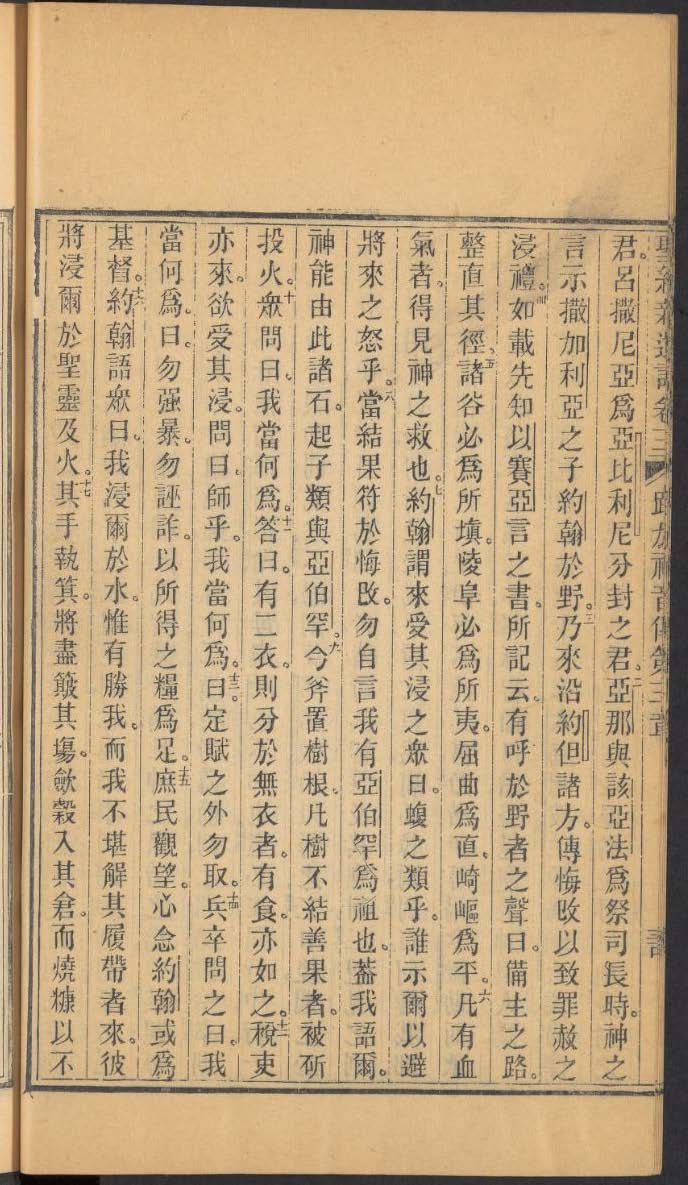 君。呂撒尼亞爲亞比利尼分封之君。二亞那與該亞法爲祭司長時。神之
言示撒加利亞之子約翰於野。三乃來沿約但諸方。傳悔改以致罪赦之
浸禮。四如載先知以賽亞言之書。所記云。有呼於野者之聲曰。備主之路。
整直其徑。五諸谷必爲所塡。陵阜必爲所夷。屈曲爲直。崎嶇爲平。六凡有血
氣者。得見神之救也。七約翰謂來受其浸之衆曰。蝮之類乎。誰示爾以避
將來之怒乎。八當結果符於悔改。勿自言我有亞伯罕爲祖也。蓋我語爾。
神能由此諸石。起子類與亞伯罕。九今斧置樹根。凡樹不結善果者。被斫
投火。十衆問曰。我當何爲。十一答曰。有二衣。則分於無衣者。有食。亦如之。十二稅吏
亦來。欲受其浸。問曰。師乎。我當何爲。十三曰。定賦之外勿取。十四兵卒問之曰。我
當何爲。曰。勿强暴。勿誣詐。以所得之糧爲足。十五庶民觀望。心念約翰或爲
基督。十六約翰語衆曰。我浸爾於水。惟有勝我。而我不堪解其履帶者來。彼
將浸爾於聖靈及火。十七其手執箕。將盡簸其塲。斂穀入其倉。而燒糠以不